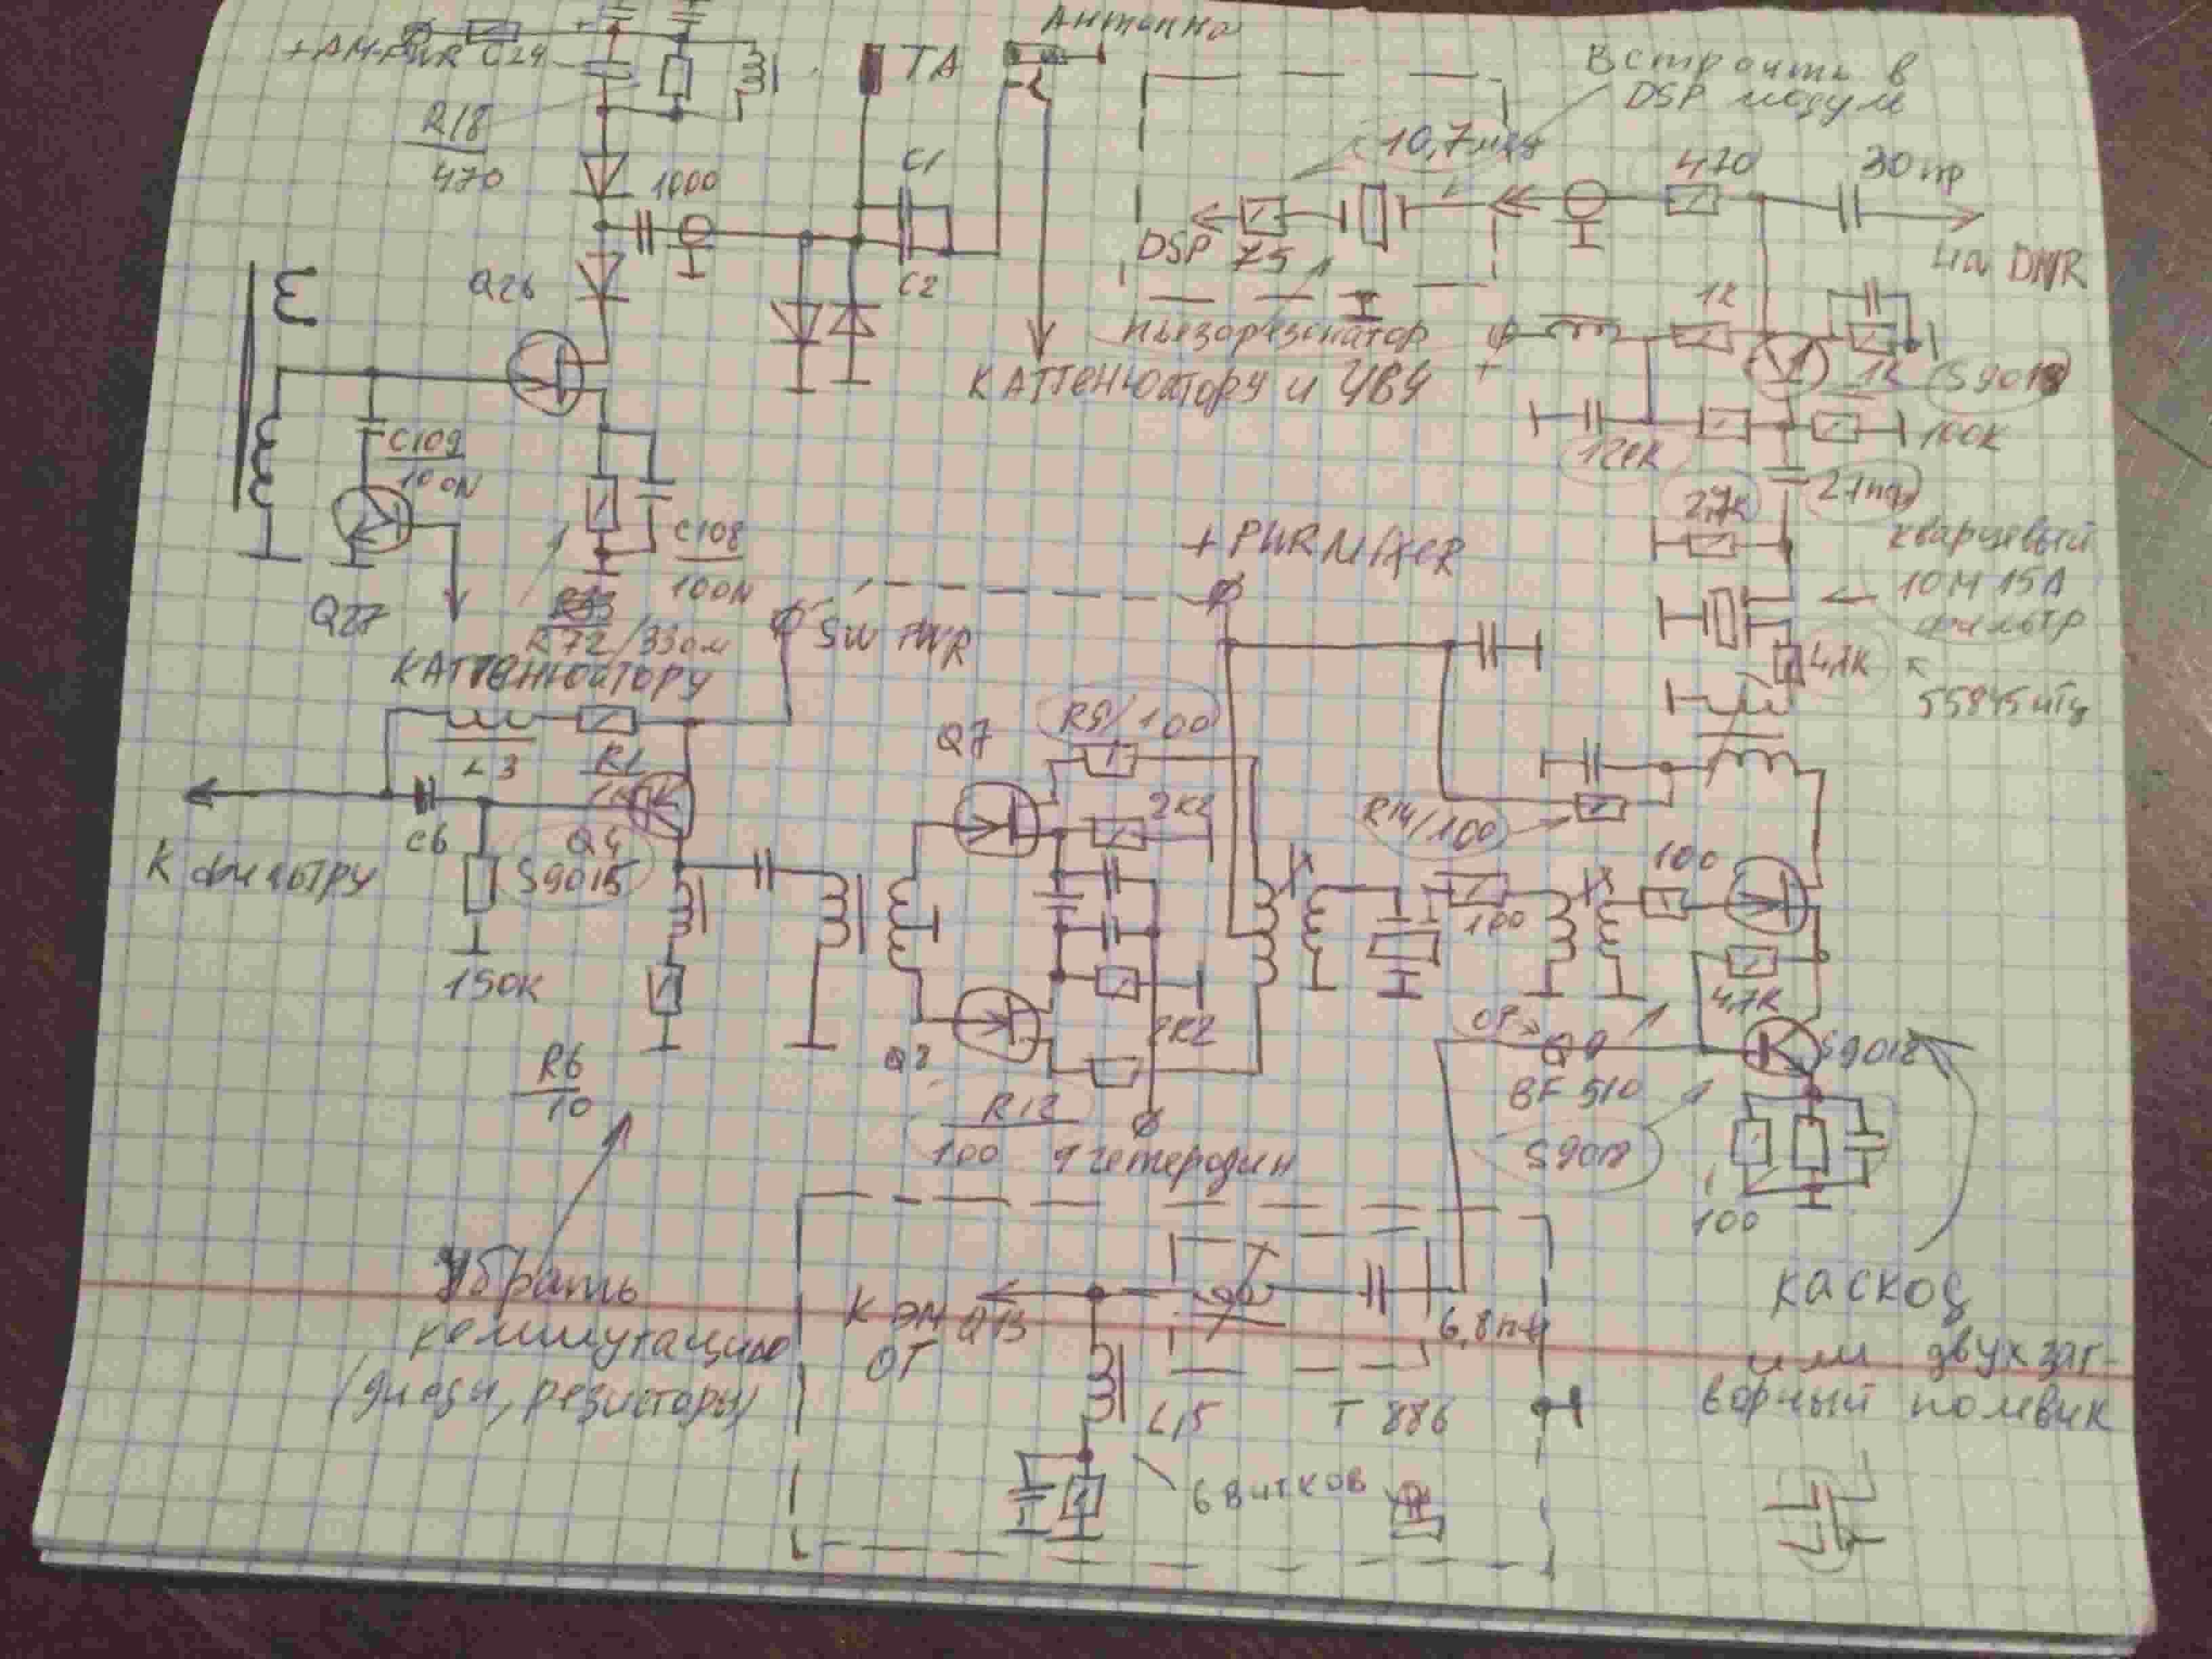 Антенна
+AM-PWR C24
TA
Встроить в
DSP модуль
R18
470
10,7мгц
470
30 пф
1000
C1
DSP 75
на DNR
Q26
C2
1k
пьезорезонатор
К АТТЕНЮАТОРУ И УВЧ
+
1k
S9018
C109
100N
120K
100K
2,7K
27пф
C108
100N
+ PWR MIXER
кварцевый
10M15A
фильтр
Q27
R72/33ом
SW PWR
4,7K
КАТТЕНЮАТОРУ
55845мгц
R9/100
Q7
L3
R1
2K2
R14/100
C6
Q4
S9015
100
К фильтру
100
150K
4,7K
2K2
Q8
Q9
S9018
R6
10
BF 510
R12
100
1 гетеродин
S9018
100
Убрать
коммутацию
(диоды, резисторы)
К ЭМ Q13
ОГ
6,8пф
каскод
или двухзат-
ворный полевик
L15
T 886
6 витков